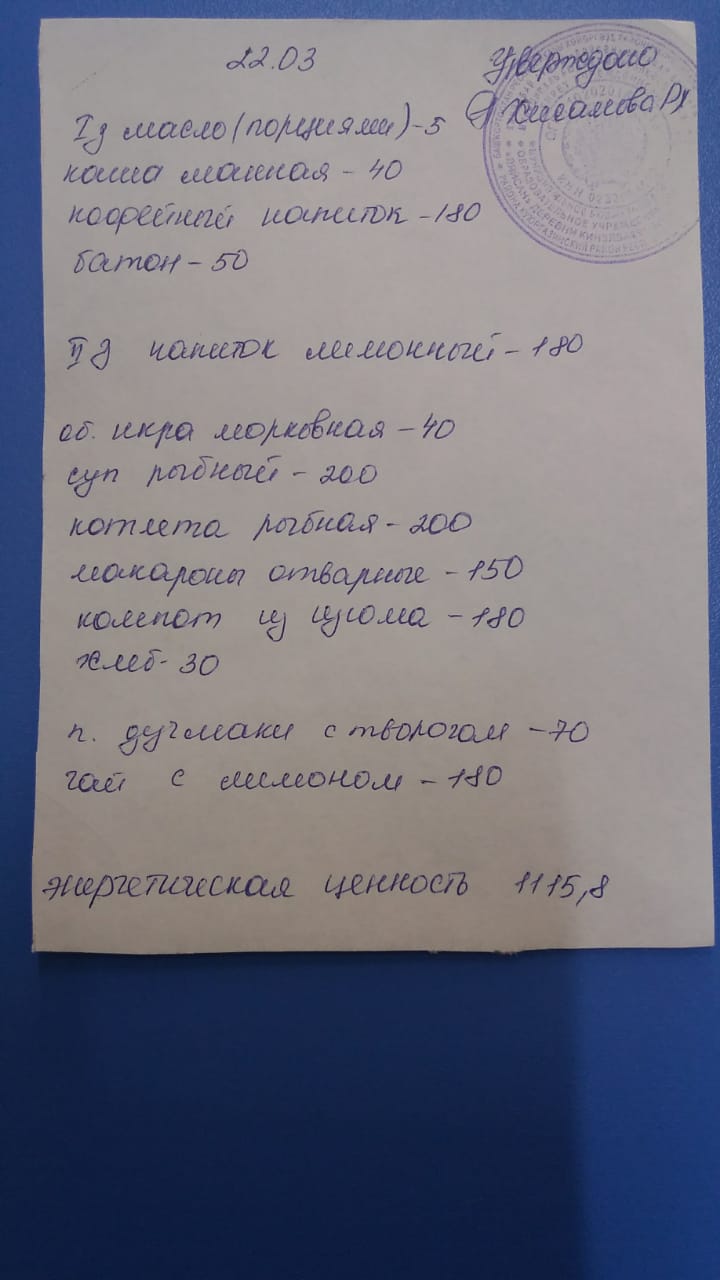 22.03
Утверждаю
Хисамова РХ
I з масло (порциями) - 5
каша манная - 40
кофейный напиток - 180
батон - 50
II з напиток лимонный - 180
об. икра морковная - 40
суп рыбный - 200
котлета рыбная - 200
макароны отварные - 150
компот из изюма - 180
хлеб - 30
п. дучмаки с творогом - 70
чай с лимоном - 180
энергетическая ценность 1115,8